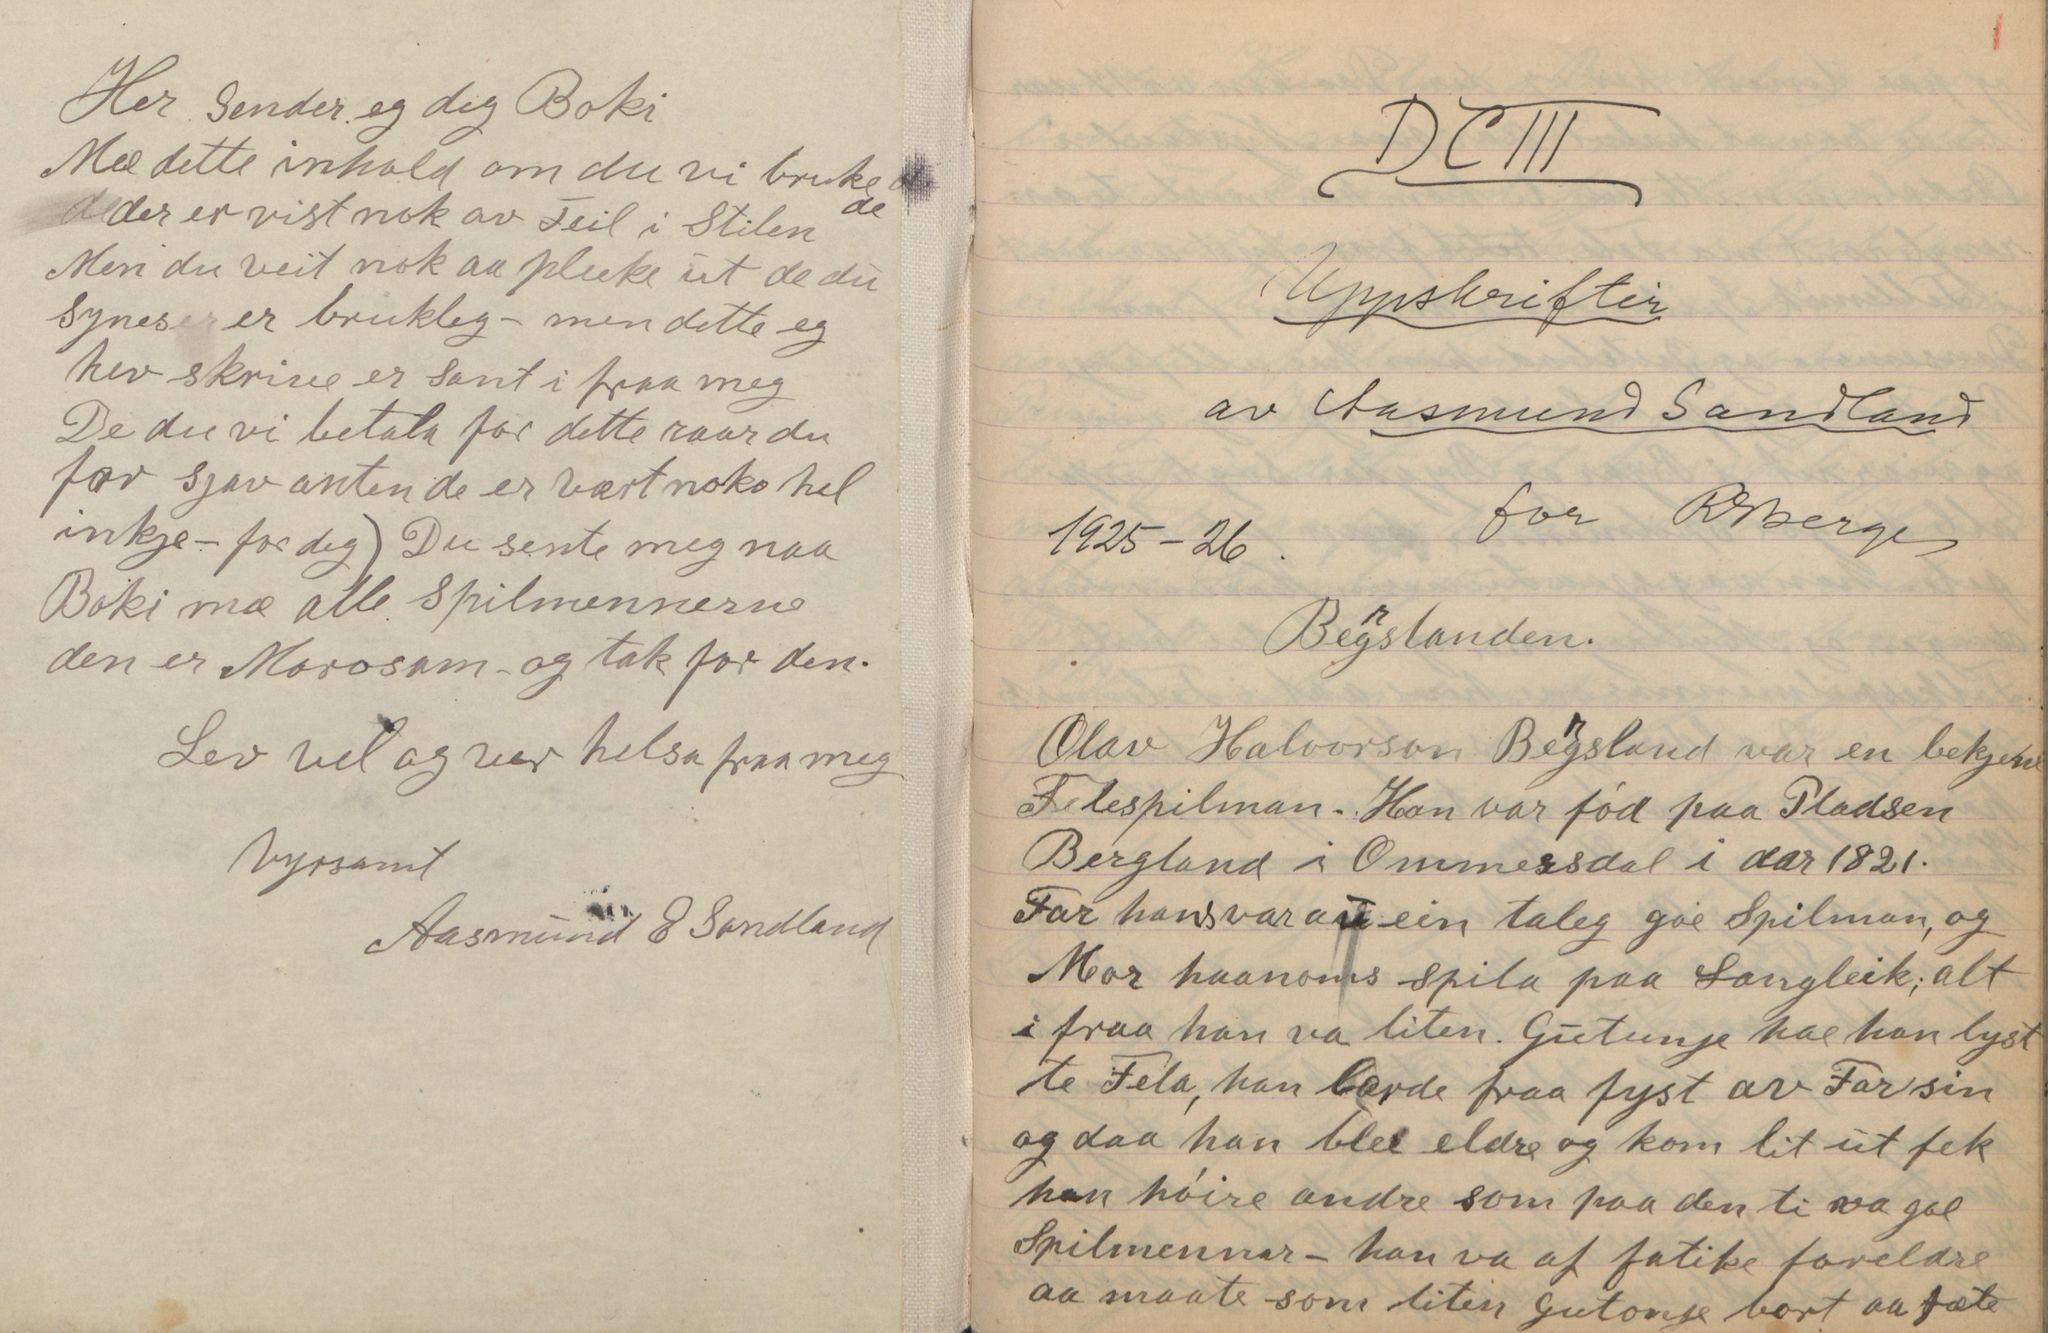 Her Sender eg deg Boki
Mæ dette inhald om du vi bruke
de
der er vist nok av Feil i Stilen
Men du veit nok aa pluke ut de du
Synes er brukleg – men dette eg
hev skrive er Sant i fraa meg
De du vi betala for dette raar du
før sjav anten de er vært noko hel
inkje – for deg) Du sente meg naa
Boki mæ alle Spilmennerne
den er Morosam – og tak for den.
Lev vel og ver helsa fraa meg
Vyrsamt
Aasmund E Sandland
1
DCIII
Uppskrifter
av Aasmund Sandland
for R Berge
1925 – 26.
Bergslanden.
Olav Halvorson Bergsland var en bekjene
Felespilman – Han var fód paa Pladsen
Bergland i Ommersdal i aar 1821.
Far hans var au ein taleg goe Spilman, og
Mor haanoms spila paa Langleik; alt
i fraa han va liten. Gutunge hae han lyst
te Fela, han lærde fraa fyst av Far sin
og daa han blei eldre og kom lit ut fek
han hóire andre som paa den ti va goe
Spilmennar – han va af fatike foreldre
aa maate som liten Gutonge bort aa jæte